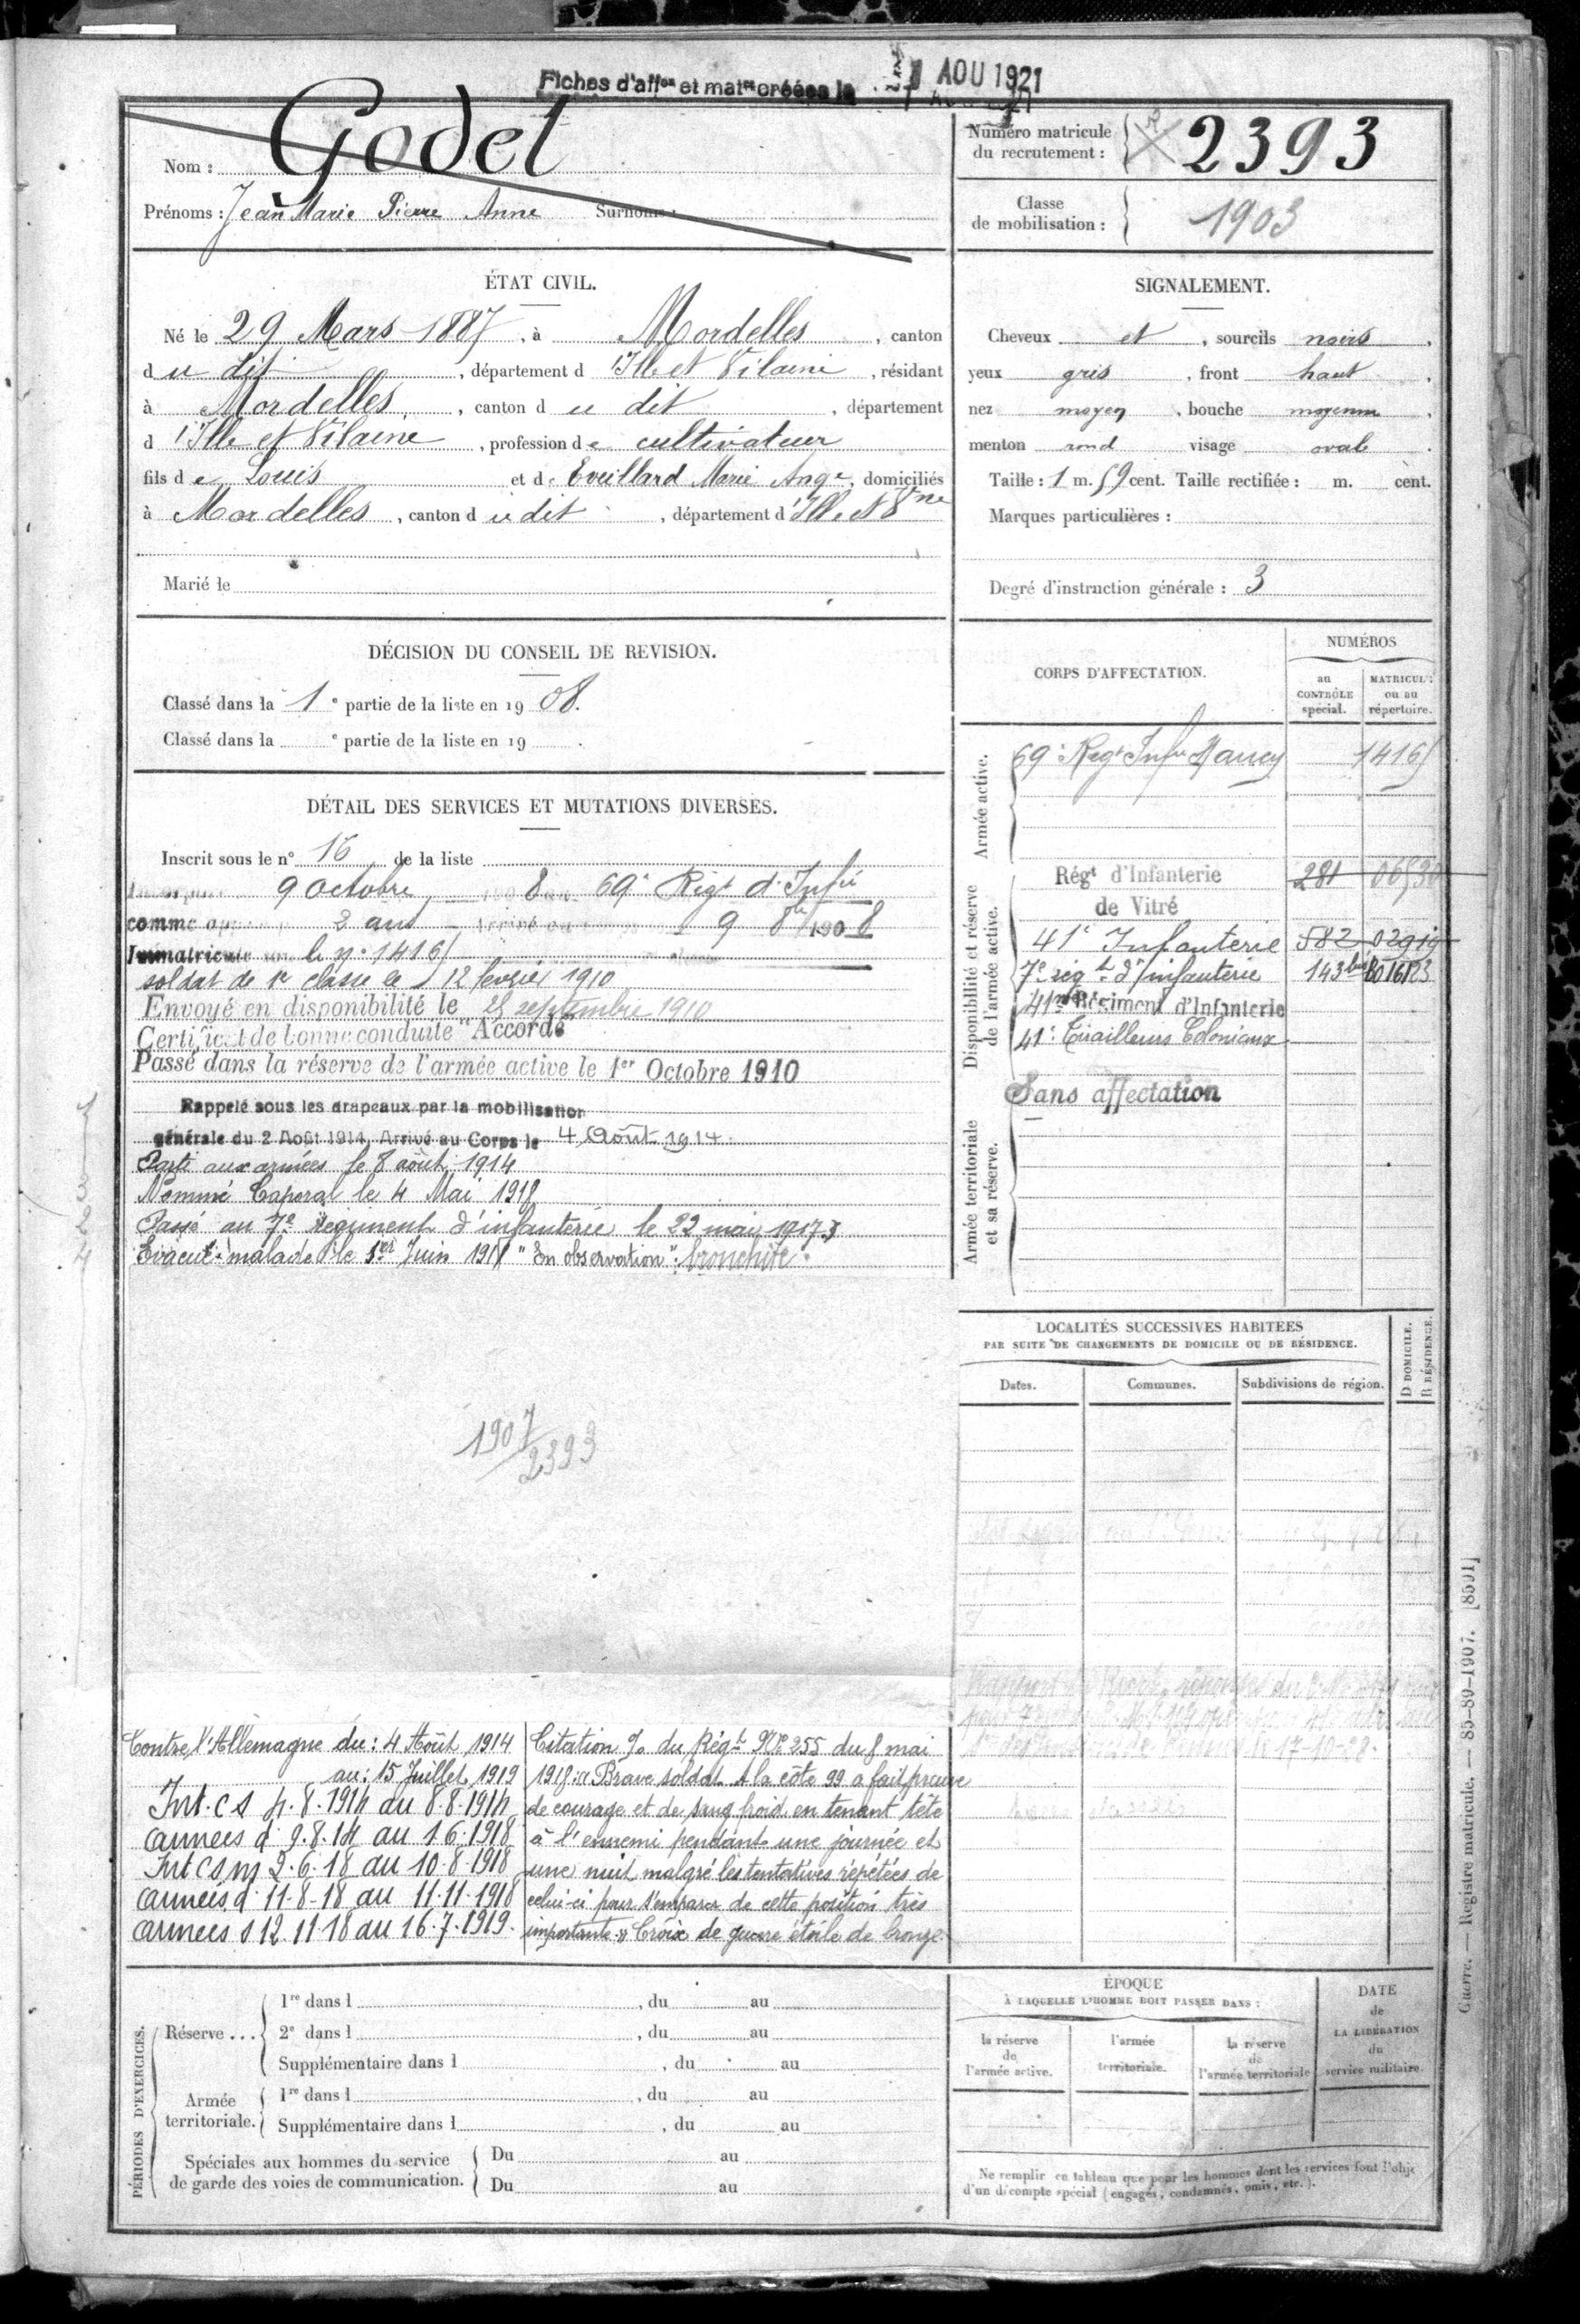 Fiches d'aff^on et mat^re créées le 1 AOU 1921
Nom : Godet
Prénoms : Jean Marie Pierre Anne Surnoms :
Numéro matricule
du recrutement : 2393
Classe
de mobilisation : 1903
ÉTAT CIVIL.
Né le 29 Mars 1887, à Mordelles, canton
du dit, département d'Ille et Vilaine, résidant
à Mordelles, canton du dit, département
d'Ille et Vilaine, profession de cultivateur
fils de Louis et de Eveillard Marie Ange, domiciliés
à Mordelles, canton du dit, département d'Ille et V^ne
Marié le
SIGNALEMENT.
Cheveux et, sourcils noirs,
yeux gris, front haut,
nez moyen, bouche moyenne,
menton rond visage ovale.
Taille : 1 m. 59 cent. Taille rectifiée : m. cent.
Marques particulières :
Degré d'instruction générale : 3
DÉCISION DU CONSEIL DE REVISION.
Classé dans la 1^e partie de la liste en 1908.
Classé dans la ^e partie de la liste en 19 .
DÉTAIL DES SERVICES ET MUTATIONS DIVERSES.
Inscrit sous le n° 16 de la liste
9 Octobre 8 69^e Rég^t d'Inf^ie
comme 2 ans 9 8^bre 1908
Immatriculé le n° 14165
soldat de 1^e classe le 12 février 1910
Envoyé en disponibilité le 25 septembre 1910
Certificat de bonne conduite "Accordé
Passé dans la réserve de l'armée active le 1^er Octobre 1910
Rappelé sous les drapeaux par la mobilisation
générale du 2 Août 1914, Arrivé au Corps le 4 Août 1914.
Parti aux armées le 8 août 1914
Nommé Caporal le 4 Mai 1918
Passé au 7^e Régiment d'infanterie le 22 mai 1917
Evacué malade le 1^er Juin 1918 "En observation" bronchite.
1907
2393
CORPS D'AFFECTATION.
NUMÉROS
au
CONTRÔLE
spécial.
MATRICUL^E
ou au
répertoire.
Armée active.
69^e Reg^t Inf^ie Nancy 14165
Disponibilité et réserve
de l'armée active.
Rég^t d'Infanterie 281 06530
de Vitré
41^e Infanterie 582 02919
7^e rég^t d'infanterie 143^bis 016123
41^me Régiment d'Infanterie
41^e Tirailleurs Coloniaux
Sans affectation
Armée territoriale
et sa réserve.
LOCALITÉS SUCCESSIVES HABITÉES
PAR SUITE DE CHANGEMENTS DE DOMICILE OU DE RÉSIDENCE.
Dates. Communes. Subdivisions de région.
D DOMICILE.
R RÉSIDENCE.
Contre l'Allemagne du : 4 Août 1914
au : 15 Juillet 1919
Int. C S 4.8.1914 au 8.8.1914
armées d 9.8.14 au 1.6.1918
Int C S m 2.6.18 au 10.8.1918
armées d 11-8-18 au 11.11.1918
armées S 12.11.18 au 16.7.1919.
Citation %o du Rég^t N° 255 du 8 mai
1918 : "Brave soldat. A la côte 99 a fait preuve
de courage et de sang froid en tenant tête
à l'ennemi pendant une journée et
une nuit malgré les tentatives répétées de
celui-ci pour s'emparer de cette position très
importante". Croix de guerre étoile de bronze.
17-10-28.
PÉRIODES D'EXERCICES.
Réserve ...
1^re dans l , du au
2^e dans l , du au
Supplémentaire dans l , du au
Armée
territoriale.
1^re dans l , du au
Supplémentaire dans l , du au
Spéciales aux hommes du service
de garde des voies de communication.
Du au
Du au
ÉPOQUE
À LAQUELLE L'HOMME DOIT PASSER DANS :
la réserve
de
l'armée active.
l'armée
territoriale.
la réserve
de
l'armée territoriale
DATE
de
LA LIBÉRATION
du
service militaire.
Ne remplir ce tableau que pour les hommes dont les services font l'obje
d'un décompte spécial (engagés, condamnés, omis, etc.).
Guerre. — Registre matricule. — 85-89-1907. [8591]